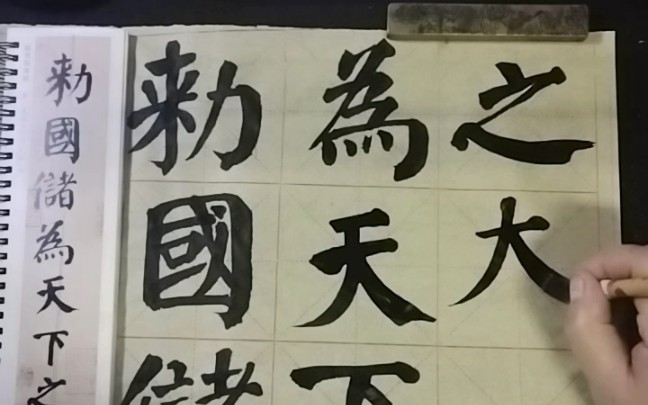 勑國儲為天下之
勑國儲
為天下
之大